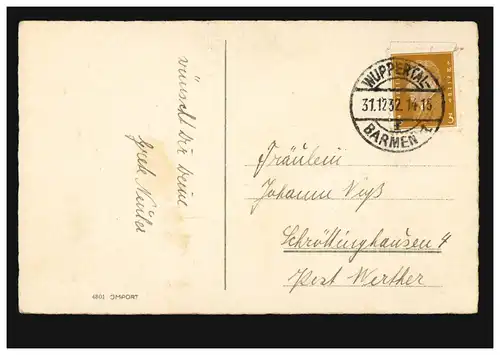 wünscht Dir Deine
WUPPERTAL-
31.12.32. 14-15
BARMEN
3
Fräulein
Johanne Voß
Schröttinghausen 4
Post Werther
4801 IMPORT